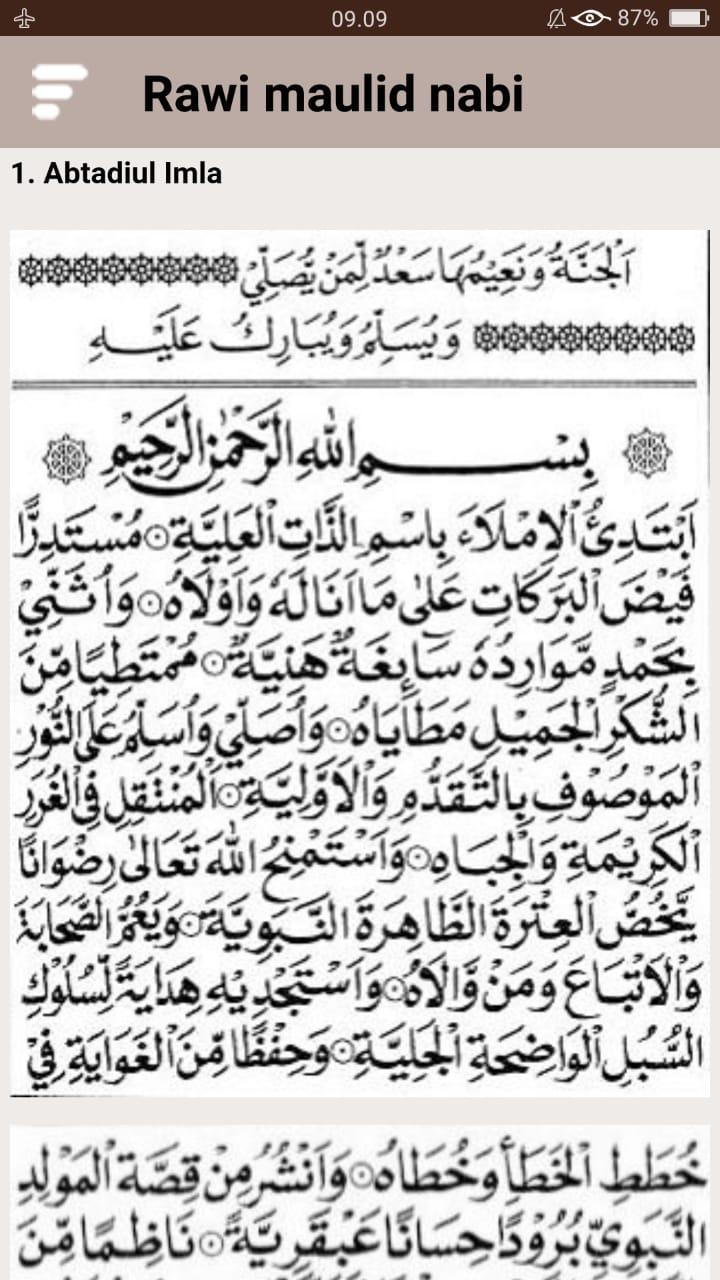 09.09
87%
Rawi maulid nabi
1. Abtadiul Imla
اَلْجَنَّةُ وَنَعِيْمُهَا سَعْدٌ لِّمَنْ يُّصَلِّيْ
وَيُسَلِّمُ وَيُبَارِكُ عَلَيْهِ
بِسْمِ اللهِ الرَّحْمٰنِ الرَّحِيْمِ
اَبْتَدِئُ الْاِمْلَاءَ بِاسْمِ الذَّاتِ الْعَلِيَّةِ ۞ مُسْتَدِرًّا
فَيْضَ الْبَرَكَاتِ عَلٰى مَا اَنَالَهُ وَاَوْلَاهُ ۞ وَاُثَنِّيْ
بِحَمْدٍ مَّوَارِدُهُ سَاۤئِغَةٌ هَنِيَّةٌ ۞ مُمْتَطِيًا مِّنَ
الشُّكْرِ الْجَمِيْلِ مَطَايَاهُ ۞ وَاُصَلِّيْ وَاُسَلِّمُ عَلَى النُّوْرِ
الْمَوْصُوْفِ بِالتَّقَدُّمِ وَالْاَوَّلِيَّةِ ۞ اَلْمُنْتَقِلِ فِى الْغُرَرِ
الْكَرِيْمَةِ وَالْجِبَاهِ ۞ وَاَسْتَمْنِحُ اللهَ تَعَالٰى رِضْوَانًا
يَّخُصُّ الْعِتْرَةَ الطَّاهِرَةَ النَّبَوِيَّةَ ۞ وَيَعُمُّ الصَّحَابَةَ
وَالْاَتْبَاعَ وَمَنْ وَّالَاهُ ۞ وَاَسْتَجْدِيْهِ هِدَايَةً لِّسُلُوْكِ
السُّبُلِ الْوَاضِحَةِ الْجَلِيَّةِ ۞ وَحِفْظًا مِّنَ الْغَوَايَةِ فِيْ
خُطَطِ الْخَطَأِ وَخُطَاهُ ۞ وَاَنْشُرُ مِنْ قِصَّةِ الْمَوْلِدِ
النَّبَوِيِّ بُرُوْدًا حِسَانًا عَبْقَرِيَّةً ۞ نَاظِمًا مِّنَ